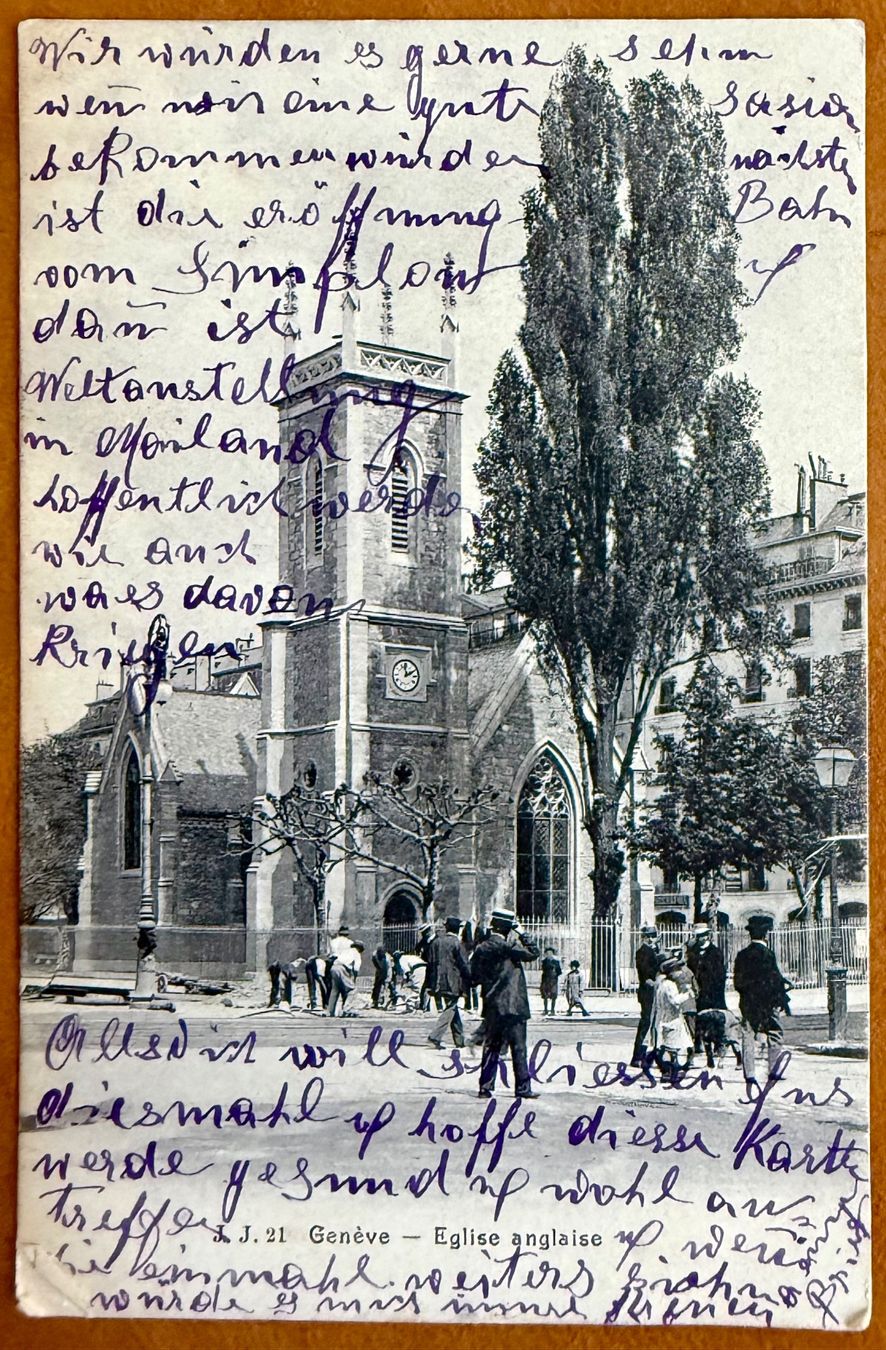 Wir würden es gerne sehn
wen̄ wir eine gute Sasion
bekommen würden nächste
ist die eröffnung Bahn
vom Simplon u
dan̄ ist
Weltausstellung
in Mailand
hoffentlich werden
wir auch
was davon
kriegen
Allso ich will schliessen fürs
diesmahl u hoffe diesse Kartte
werde gesund u wohl an
treffen u wen̄
J. J. 21 Genève — Eglise anglaise
Sie einmahl weiters
würde es mich immer freuen